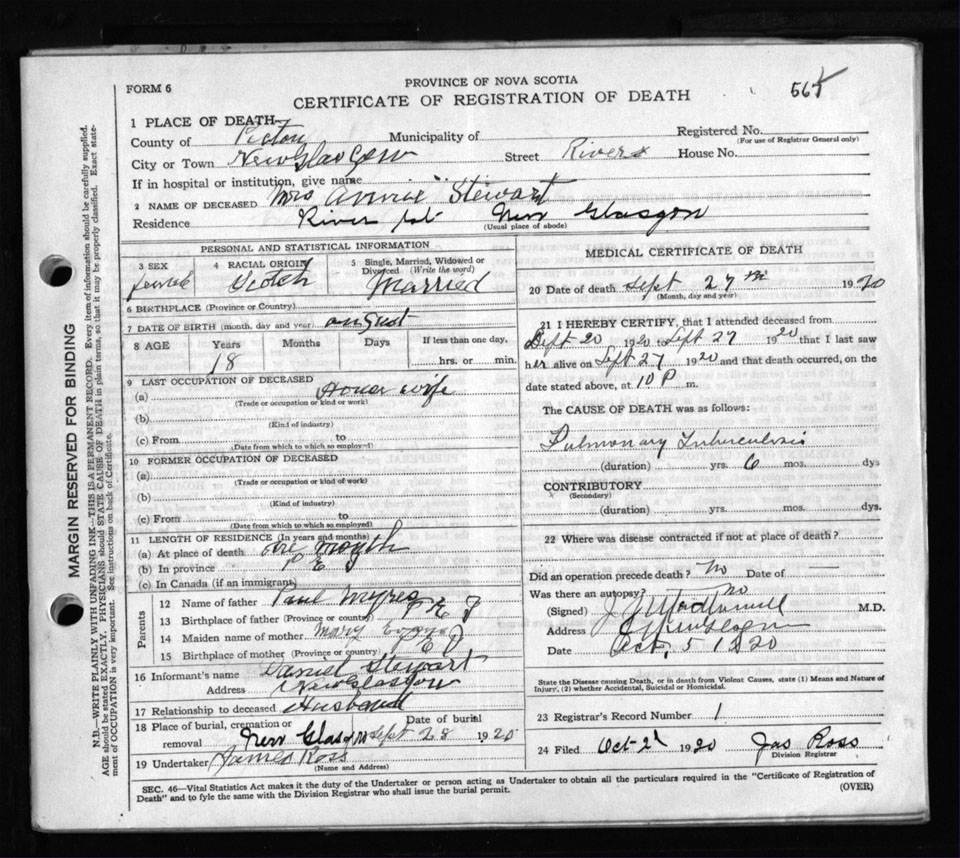 PROVINCE OF NOVA SCOTIA
FORM 6
CERTIFICATE OF REGISTRATION OF DEATH
565
1 PLACE OF DEATH—
County of Pictou Municipality of Registered No.
(For use of Registrar General only)
City or Town New Glasgow Street River House No.
If in hospital or institution, give name
2 NAME OF DECEASED Mrs Annie Stewart
Residence River St New Glasgow
(Usual place of abode)
PERSONAL AND STATISTICAL INFORMATION
3 SEX 4 RACIAL ORIGIN 5 Single, Married, Widowed or Divorced (Write the word)
female Scotch Married
6 BIRTHPLACE (Province or Country)
7 DATE OF BIRTH (month, day and year) august
8 AGE Years Months Days If less than one day,
18 hrs. or min.
9 LAST OCCUPATION OF DECEASED
(a) House wife
(Trade or occupation or kind or work)
(b)
(Kind of industry)
(c) From to
(Date from which to which so employed)
10 FORMER OCCUPATION OF DECEASED
(a)
(Trade or occupation or kind of work)
(b)
(Kind of industry)
(c) From to
(Date from which to which so employed)
11 LENGTH OF RESIDENCE (In years and months)
(a) At place of death one month
(b) In province P E I
(c) In Canada (if an immigrant)
Parents
12 Name of father Paul Myres
13 Birthplace of father (Province or country) P E I
14 Maiden name of mother Mary
15 Birthplace of mother (Province or country) P E I
16 Informant's name Daniel Stewart
Address New Glasgow
17 Relationship to deceased Husband
18 Place of burial, cremation or removal New Glasgow Date of burial Sept 28 1920
19 Undertaker James Ross
(Name and Address)
MEDICAL CERTIFICATE OF DEATH
20 Date of death Sept 27th 1920
(Month, day and year)
21 I HEREBY CERTIFY, that I attended deceased from
Sept 20 1920 to Sept 27 1920 that I last saw
her alive on Sept 27 1920 and that death occurred, on the
date stated above, at 10 P m.
The CAUSE OF DEATH was as follows:
Pulmonary Tuberculosis
(duration) yrs. 6 mos. dys
CONTRIBUTORY
(Secondary)
(duration) yrs. mos. dys.
22 Where was disease contracted if not at place of death?
Did an operation precede death? No Date of —
Was there an autopsy? No
(Signed) M.D.
Address
Date Oct, 5 1920
State the Disease causing Death, or in death from Violent Causes, state (1) Means and Nature of Injury, (2) whether Accidental, Suicidal or Homicidal.
23 Registrar's Record Number 1
24 Filed Oct 21 1920 Jas Ross
Division Registrar
SEC. 46—Vital Statistics Act makes it the duty of the Undertaker or person acting as Undertaker to obtain all the particulars required in the "Certificate of Registration of
Death" and to fyle the same with the Division Registrar who shall issue the burial permit. (OVER)
MARGIN RESERVED FOR BINDING
N.B.—WRITE PLAINLY WITH UNFADING INK—THIS IS A PERMANENT RECORD. Every item of information should be carefully supplied.
AGE should be stated EXACTLY. PHYSICIANS should STATE CAUSE OF DEATH in plain terms, so that it may be properly classified. Exact statement of OCCUPATION is very important. See instructions on back of Certificate.